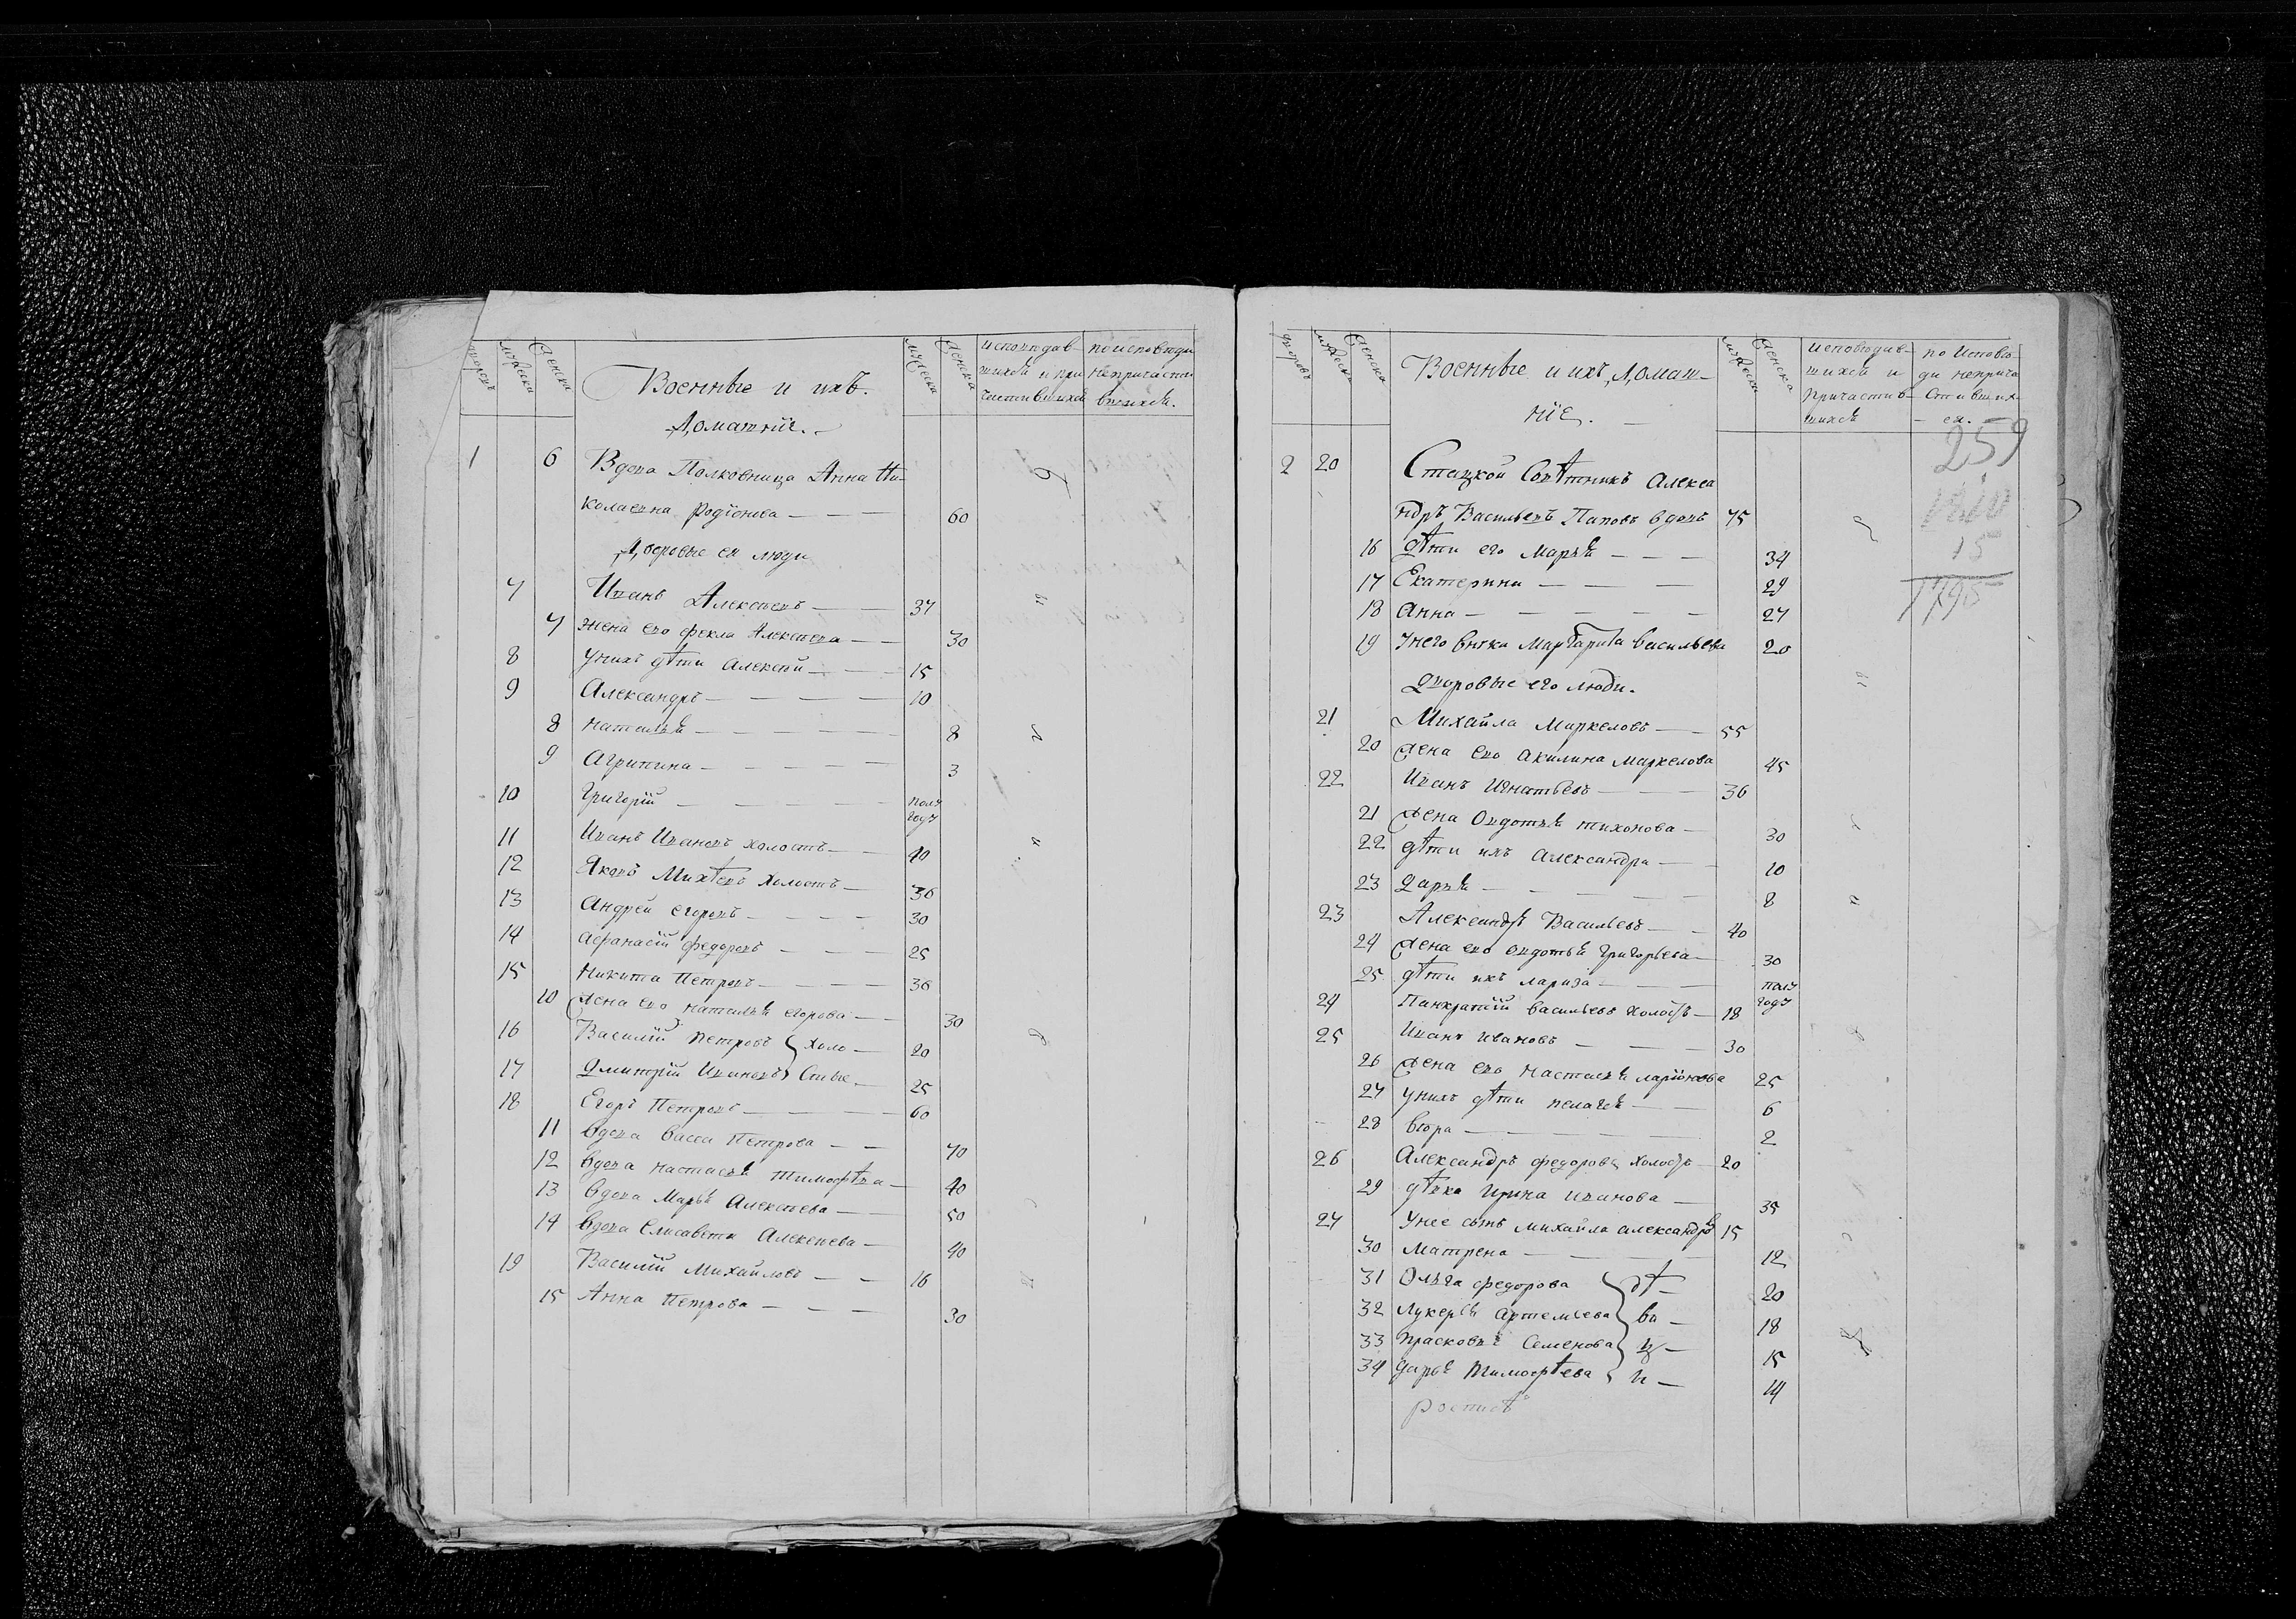 дворовъ мужеска женска Военные и ихъ мужеска женска исповѣдав- по исповѣди
шихся и при непричасти
частившихся вшихся.
домашніе.
1 6 Вдова Полковница Анна Ни-
колаевна Родіонова 60
Дворовые ея люди
7 Иванъ Алексѣевъ 37
7 жена его Фекла Алексѣева 30
8 Унихъ дѣти Алексѣй 15
9 Александръ 10
8 Наталья 8
9 Агрипина 3
10 Григорій полу
году
11 Иванъ Ивановъ холостъ 40
12 Яковъ Михѣевъ холостъ 36
13 Андрей Егоровъ 30
14 Афанасій Федоровъ 25
15 Никита Петровъ 36
10 Жена его Наталья Егорова 30
16 Василій Петровъ } Холо 20
17 Дмитрій Ивановъ } стые 25
18 Егоръ Петровъ 60
11 Вдова Васса Петрова 70
12 Вдова Настасья Тимофѣева 40
13 Вдова Марья Алексѣева 50
14 Вдова Елисавета Алексѣева 40
19 Василій Михайловъ 16
15 Анна Петрова 30
дворовъ мужеска женска Военные и ихъ Домаш- мужеска женска исповѣдав- по Исповѣ-
шихся и ди неприча
ніе. причастив- стивших-
шихся ся.
259
2 20 Стацкой Совѣтникъ Алекса
ндръ Васильевъ Паповъ вдовъ 75
15
16 Дѣти его Марья 34
17 Екатерина 29
1795
18 Анна 27
19 Унего внука Маргарита Васильева 20
Дворовые его люди.
21 Михайла Маркеловъ 55
20 Жена его Акилина Маркелова 45
22 Иванъ Игнатьевъ 36
21 Жена Овдотья Тихонова 30
22 дѣти ихъ Александра 10
23 Дарья 8
23 Александръ Васильевъ 40
24 Жена его Овдотья Григорьева 30
25 дѣти ихъ Лариза полу
году
24 Панкратій Васильевъ Холостъ 18
25 Иванъ Ивановъ 30
26 Жена его Настасья Ларіонова 25
27 Унихъ дѣти Пелагея 6
28 Вѣра 2
26 Александръ Федоровъ Холостъ 20
29 дѣвка Ирина Иванова 35
27 Унее сынъ Михайла Александровъ 15
30 Матрена 12
31 Ольга Федорова } дѣ 20
32 Лукерья Артемьева } ви 18
33 Прасковья Семенова } ц 15
34 Дарья Тимофѣева } и 14